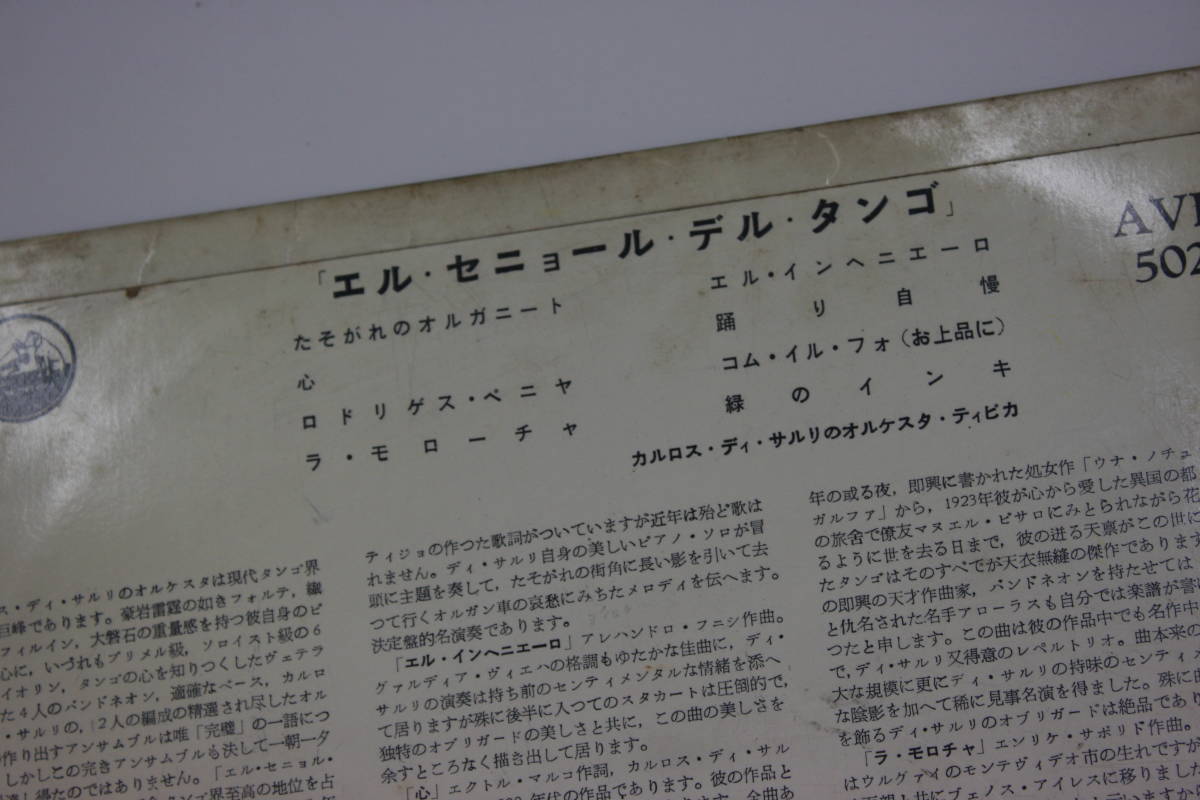 「エル・セニョール・デル・タンゴ」
たそがれのオルガニート
心
ロドリゲス・ペニヤ
ラ・モローチャ
エル・インヘニエーロ
踊り自慢
コム・イル・フォ（お上品に）
緑のインキ
カルロス・ディ・サルリのオルケスタ・ティピカ
AV
502
ス・ディ・サルリのオルケスタは現代タンゴ界
巨峰であります。豪岩雷霆の如きフォルテ，繊
フィルイン，大磐石の重量感を持つ彼自身のピ
心に，いづれもプリメル級，ソロイスト級の6
イオリン，タンゴの心を知りつくしたヴェテラ
た4人のバンドネオン，適確なベース，カルロ
・サルリの，12人の編成の精選され尽したオル
の作り出すアンサムブルは唯「完璧」の一語につ
しかしこの完きアンサムブルも決して一朝一夕
得たのではありません。「エル・セニョル・
タンゴ界至高の地位を占
ティジョの作つた歌詞がついていますが近年は殆ど歌は
れません。ディ・サルリ自身の美しいピアノ・ソロが冒
頭に主題を奏して，たそがれの街角に長い影を引いて去
つて行くオルガン車の哀愁にみちたメロディを伝へます。
決定盤的名演奏であります。
「エル・インヘニエーロ」アレハンドロ・フニシ作曲。
グァルディア・ヴィエハの格調もゆたかな佳曲に，ディ・
サルリの演奏は持ち前のセンティメンダルな情緒を添へ
て居りますが殊に後半に入つてのスタカートは圧倒的で，
独特のオブリガードの美しさと共に，この曲の美しさを
余すところなく描き出して居ります。
「心」エクトル・マルコ作詞，カルロス・ディ・サル
年代の作品であります。彼の作品と
年の或る夜，即興に書かれた処女作「ウナ・ノチェ
ガルファ」から，1923年彼が心から愛した異国の都
の旅舎で僚友マヌエル・ピサロにみとられながら花
るように世を去る日まで，彼の迸る天禀がこの世に
たタンゴはそのすべてが天衣無縫の傑作であります
の即興の天才作曲家，バンドネオンを持たせては
と仇名された名手アローラスも自分では楽譜が書
つたと申します。この曲は彼の作品中でも名作中
で，ディ・サルリ又得意のレペルトリオ。曲本来の
大な規模に更にディ・サルリの持味のセンティメ
な陰影を加へて稀に見事名演を得ました。殊に曲
を飾るディ・サルリのオブリガードは絶品であり
「ラ・モロチャ」エンリケ・サボリド作曲。
はウルグァイのモンテヴィデオ市の生れですが
と共にブェノス・アイレスに移りました